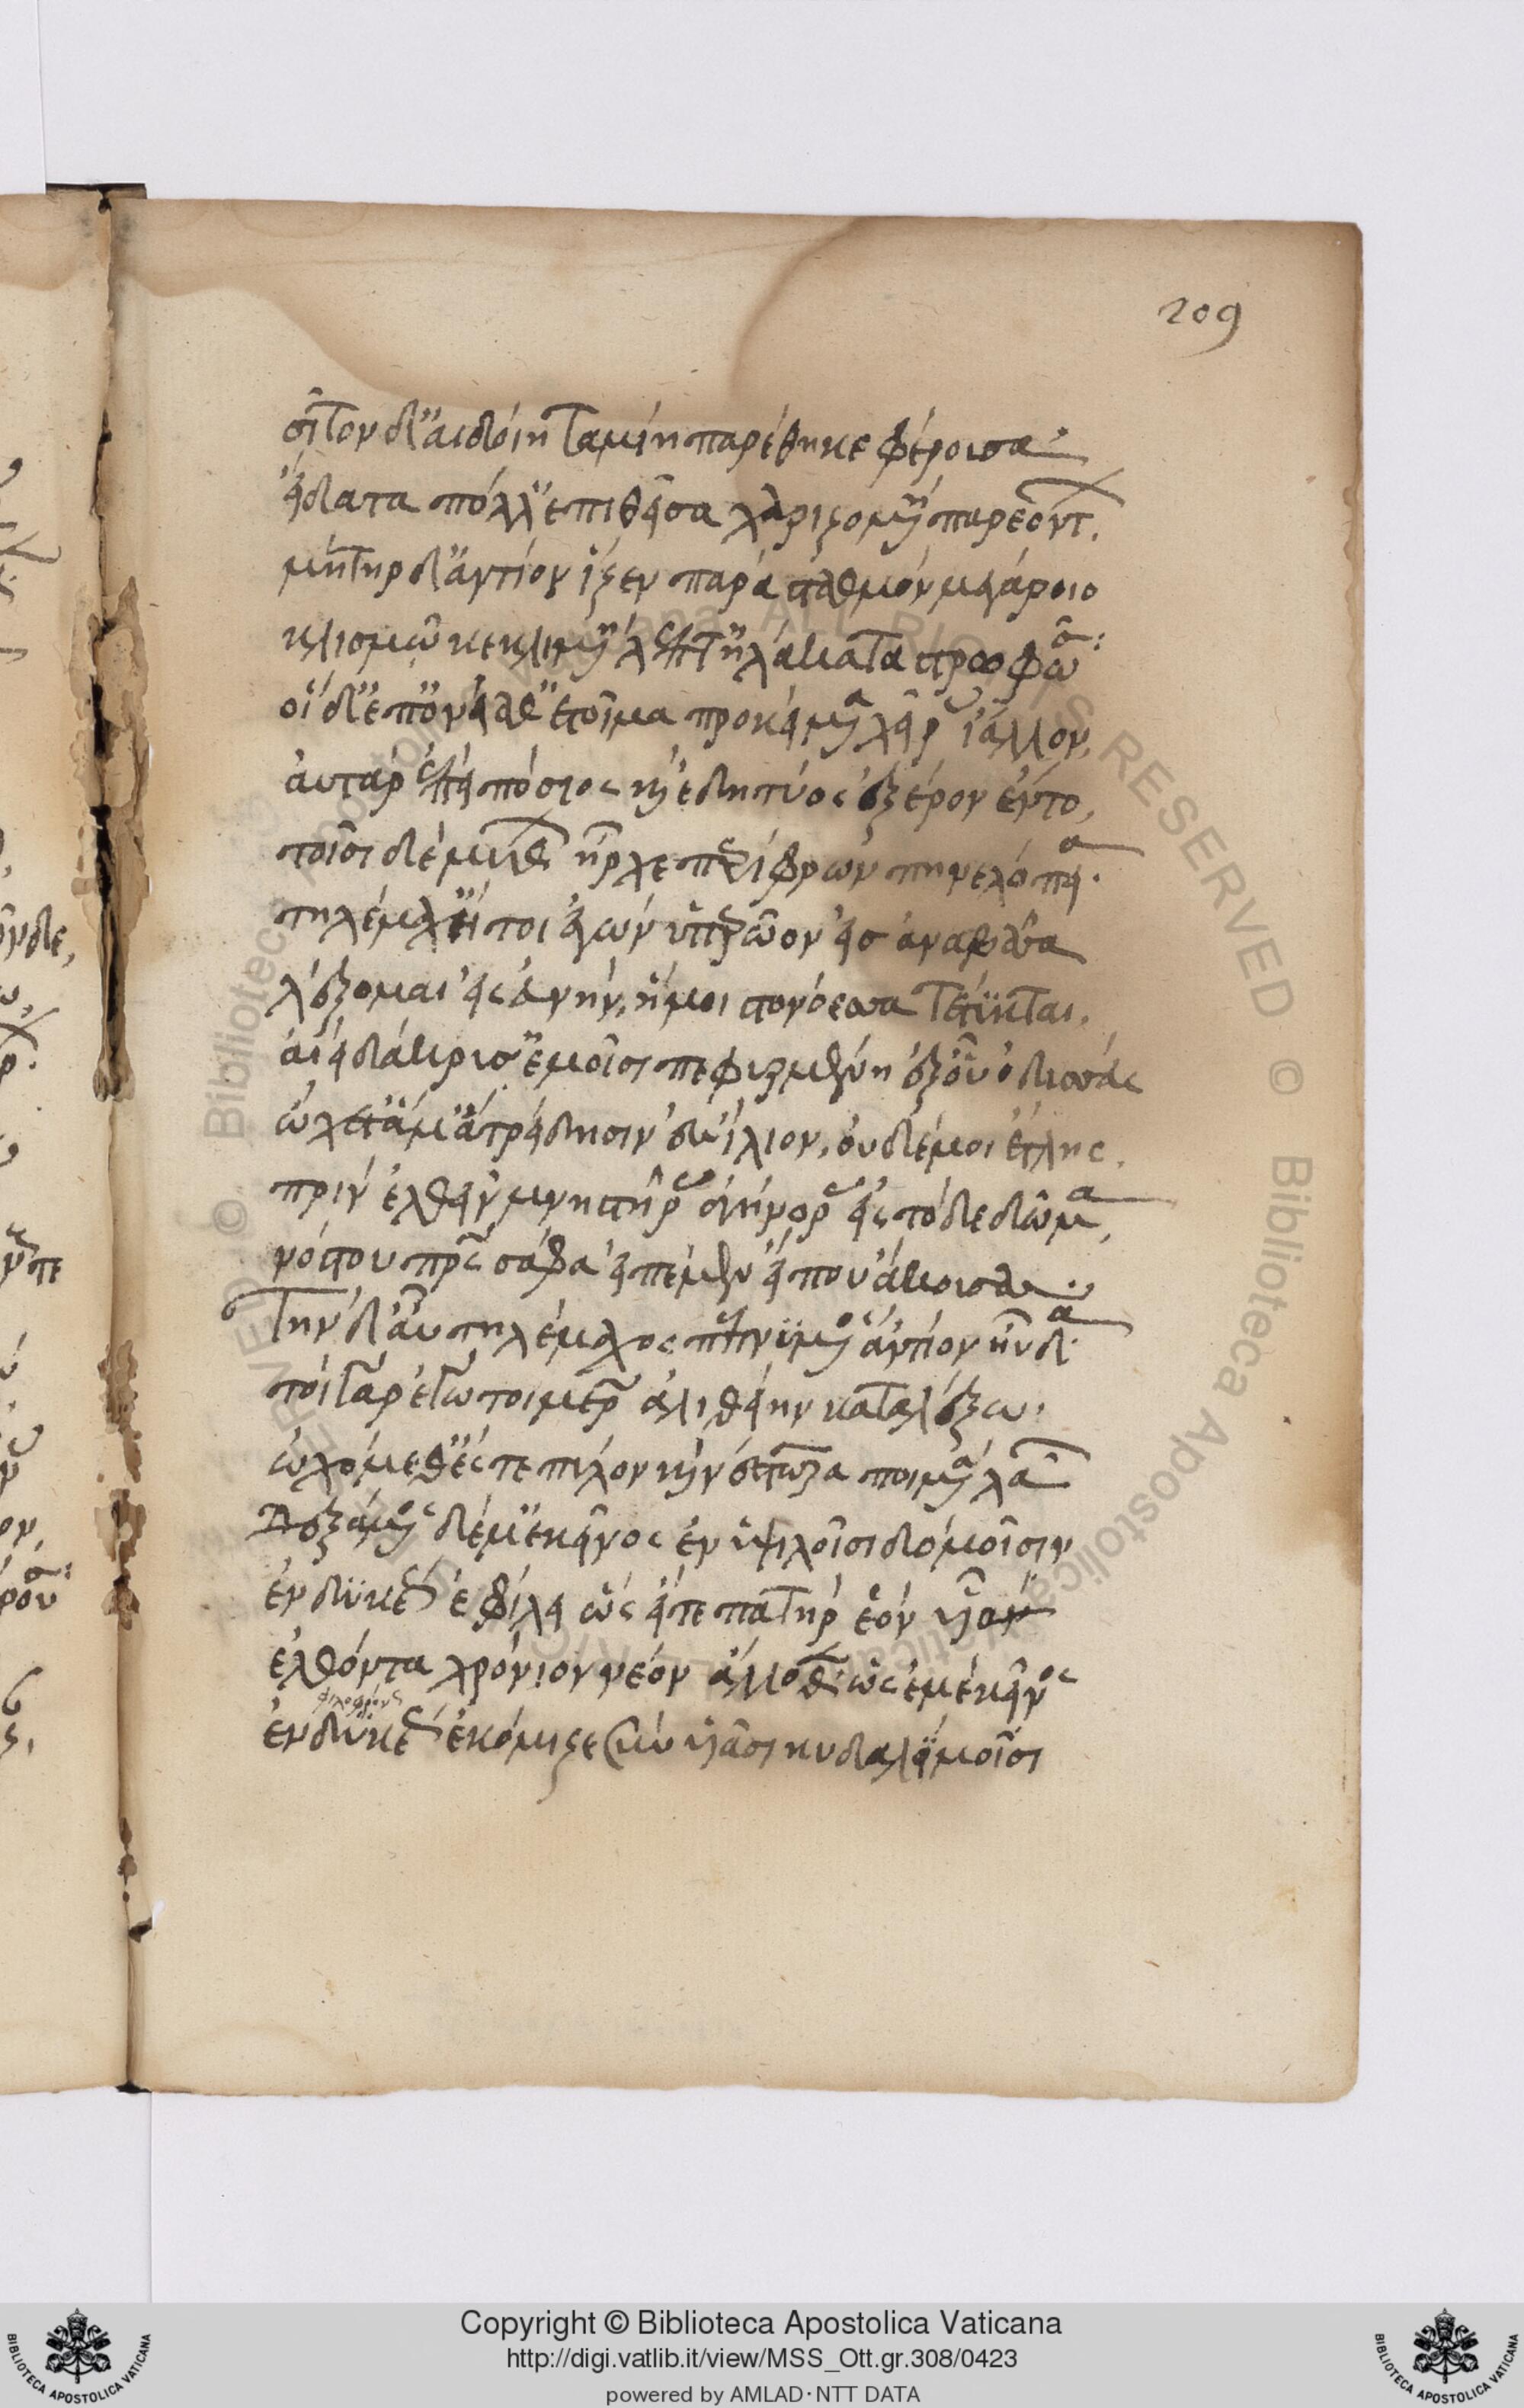 209
σῖτον δ' αἰδοίη ταμίη παρέθηκε φέρουσα·
εἴδατα πόλλ' ἐπιθεῖσα χαριζομένη παρεόντ.
μήτηρ δ' ἀντίον ἷζεν παρὰ σταθμὸν μεγάροιο
κλισμῶ κεκλιμένη λέπτ' ἠλάκατα στρωφῶσα:
οἱ δ' ἐπ' ὀνείαθ' ἑτοῖμα προκείμενα χεῖρας ἴαλλον,
αὐτὰρ ἐπεὶ πόσιος καὶ ἐδητύος ἐξ ἔρον ἕντο,
τοῖσι δὲ μύθων ἦρχε περίφρων πηνελόπεια.
τηλέμαχ' ἤτοι ἐγὼν ὑπερῶον εἰσαναβᾶσα
λέξομαι εἰς εὐνήν, ἥ μοι στονόεσσα τέτυκται,
αἰεὶ δάκρυσ' ἐμοῖσι πεφυρμένη ἐξ οὗ ὀδυσσεὺς
ὤχεθ' ἅμ' ἀτρείδησιν ἐς ἴλιον, οὐδέ μοι ἔτλης,
πρὶν ἐλθεῖν μνηστῆρας ἀγήνορας εἰς τόδε δῶμα,
νόστου πατρὸς σάφα εἰπέμεν εἴ που ἄκουσας·
Τὴν δ' αὖ τηλέμαχος πεπνυμένος ἀντίον ηὔδα·
τοὶ γὰρ ἐγώ τοι μῆτερ ἀληθείην καταλέξω.
ὠχόμεθ' ἔς τε πύλον καὶ νέστορα ποιμένα λαῶν
Δεξάμενος δέ μ' ἐκεῖνος ἐν ὑψηλοῖσι δόμοισιν
ἐνδυκέως ἐφίλει ὡς εἴτε πατὴρ ἑὸν υἱὸν
ἐλθόντα χρόνιον νέον ἄλλοθεν· ὣς ἐμὲ κεῖνος
φιλοφρόνως
ἐνδυκέως ἐκόμιζε σὺν υἱάσι κυδαλίμοισι
Copyright © Biblioteca Apostolica Vaticana
http://digi.vatlib.it/view/MSS_Ott.gr.308/0423
powered by AMLAD·NTT DATA